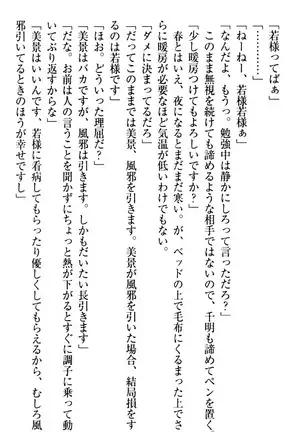 「若様ってばぁ」
「………」
「ねーねー、若様若様ぁ」
「なんだよ、もうっ。勉強中は静かにしろって言っただろ？」
このまま無視を続けても諦めるような相手ではないので、千明も諦めてペンを置く。
「少し暖房つけてもよろしいですか？」
春とはいえ、夜になるとまだまだ寒い。が、ベッドの上で毛布にくるまった上でさ
らに暖房が必要なほど気温が低いわけでもない。
「ダメに決まってるだろ」
「だってこのままでは美景、風邪を引きます。美景が風邪を引いた場合、結局損をす
るのは若様です」
「ほお。どういった理屈だ？」
「美景はバカですが、風邪は引きます。しかもだいたい長引きます」
「だな。お前は人の言うことを聞かずにちょっと熱が下がるとすぐに調子に乗って動
いてぶり返すからな」
「美景はいいんです、若様に看病してもらったり優しくしてもらえるから、むしろ風
邪引いてるときのほうが幸せですし」